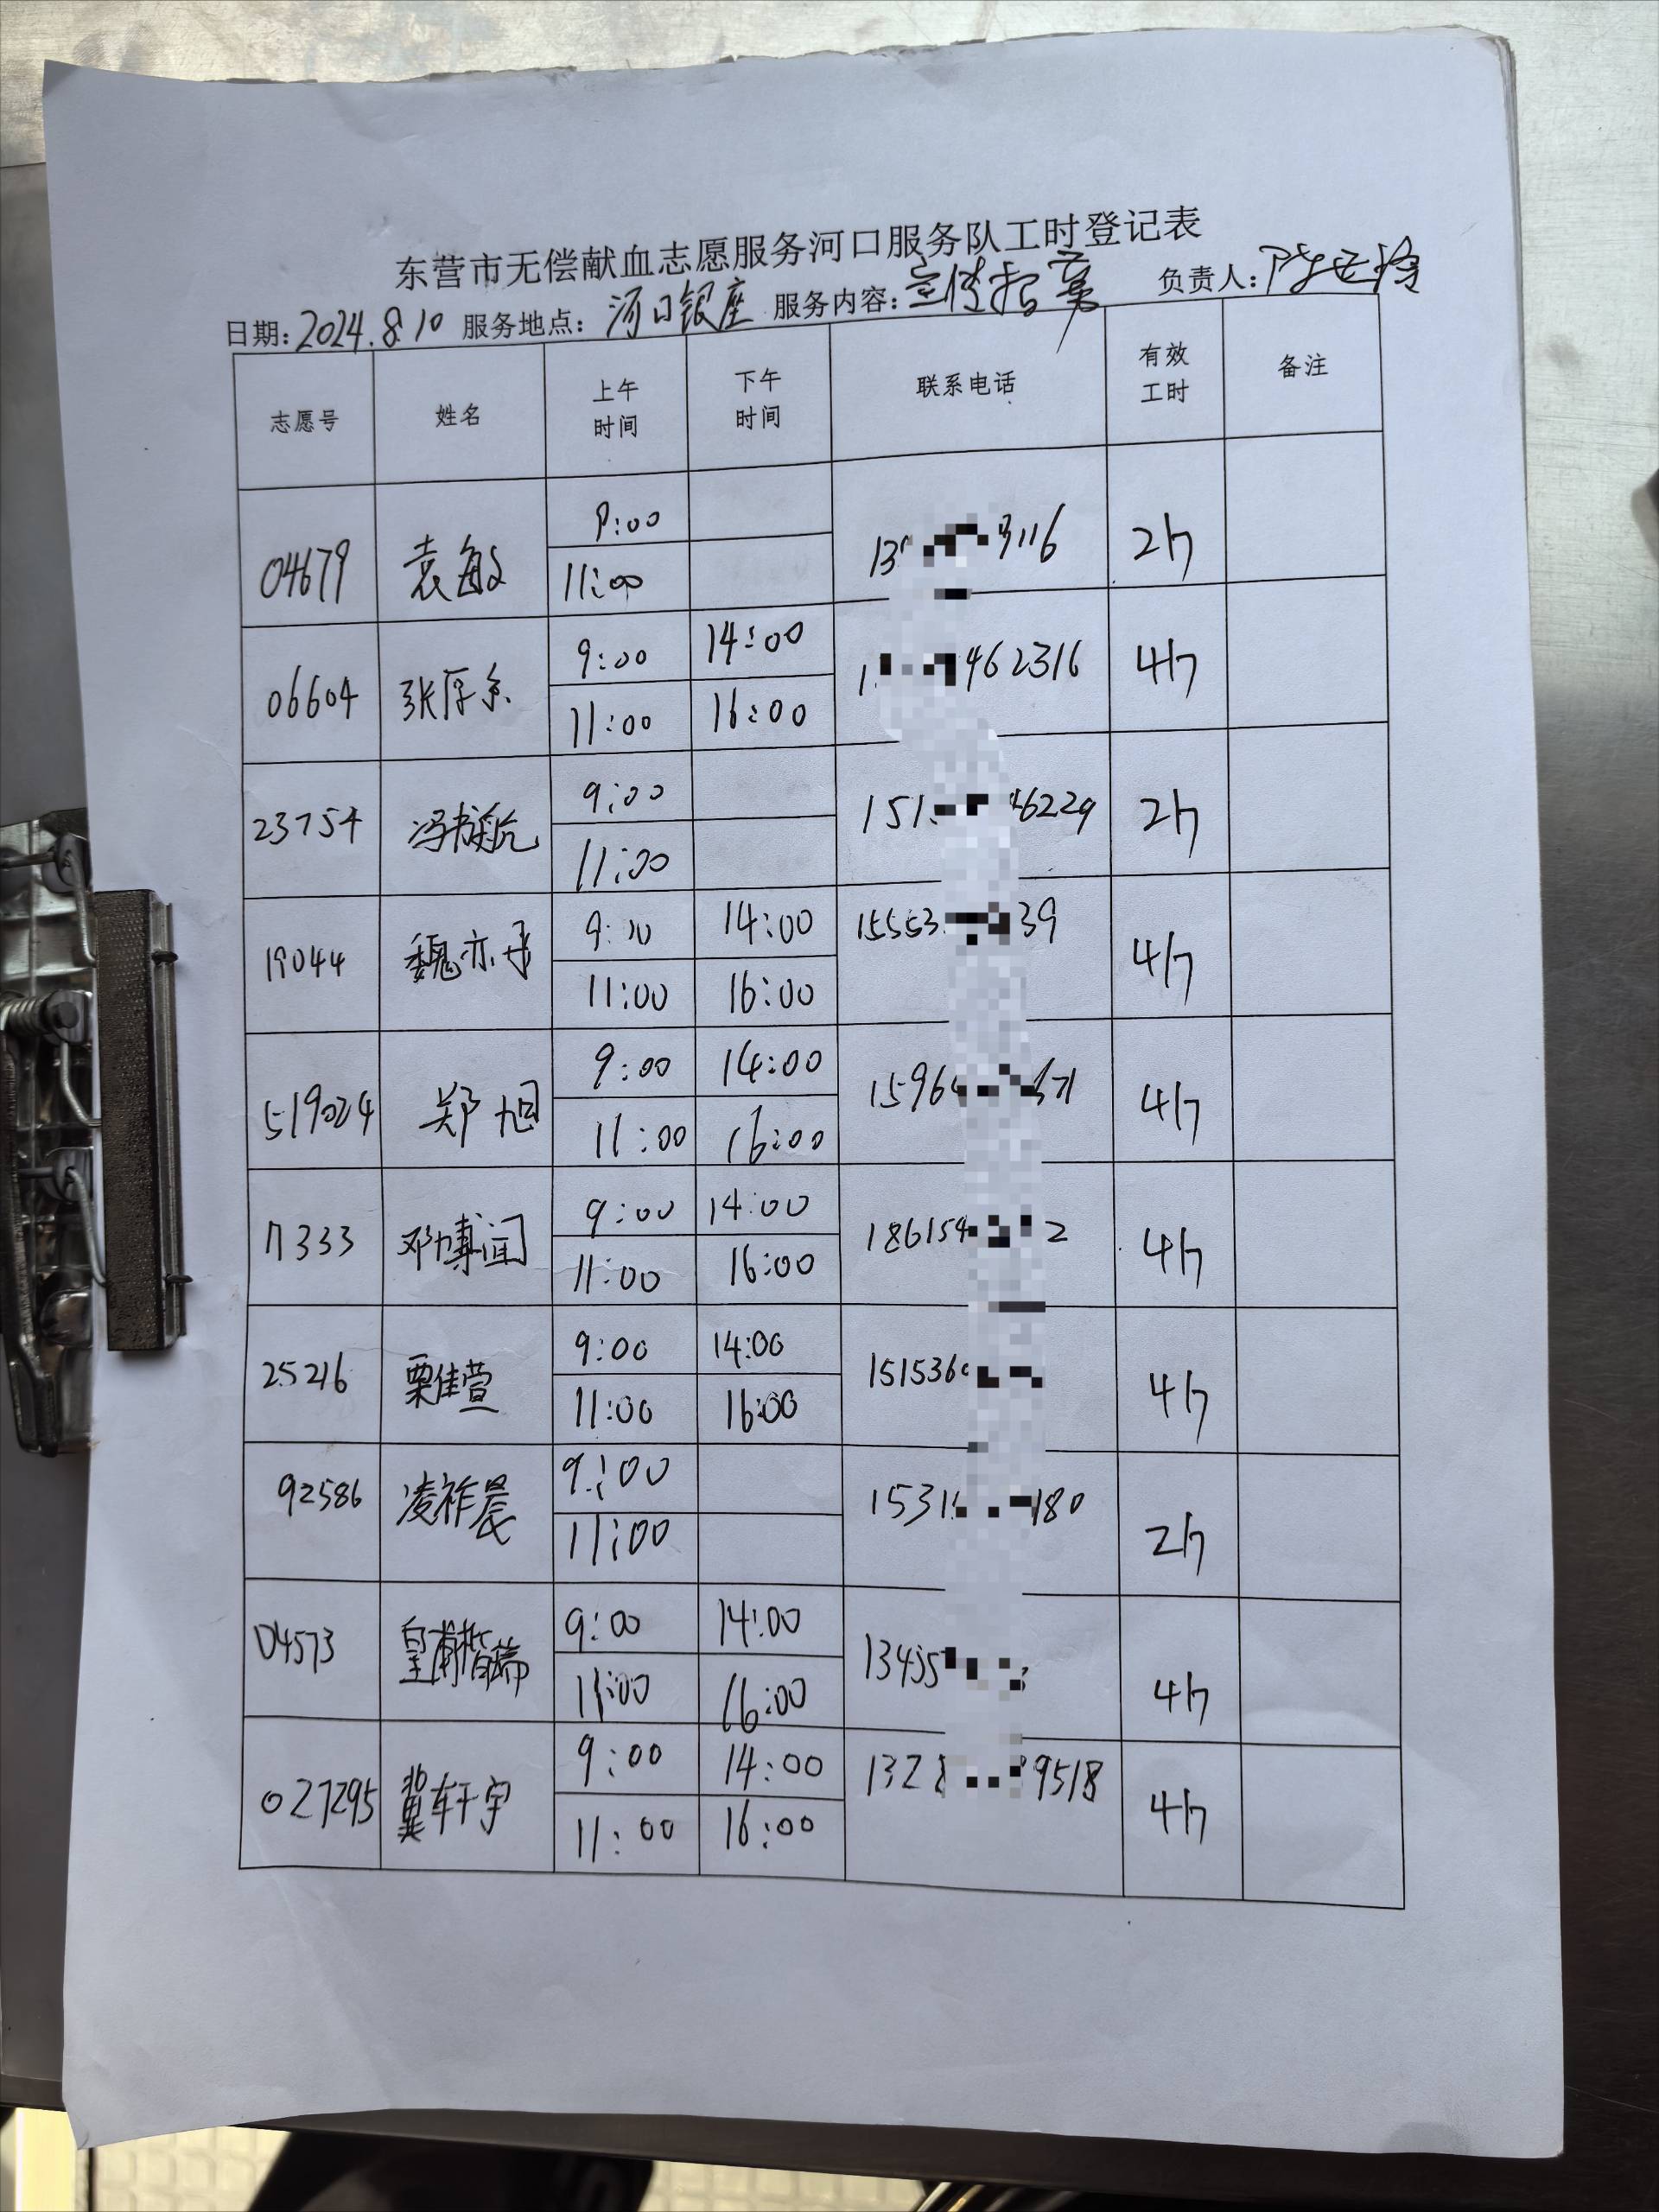 东营市无偿献血志愿服务河口服务队工时登记表
日期: 2024.8.10 服务地点: 河口银座 服务内容: 宣传招募 负责人:
志愿号 姓名 上午时间 下午时间 联系电话 有效工时 备注
04679 袁敏 9:00 11:00 2h
06604 9:00 11:00 14:00 16:00 462316 4h
23754 冯书航 9:00 11:00 151 6229 2h
19044 魏亦 9:00 11:00 14:00 16:00 15553 39 4h
519024 郑旭 9:00 11:00 14:00 16:00 1596 4h
17333 邓博闻 9:00 11:00 14:00 16:00 186154 2 4h
25216 栗佳萱 9:00 11:00 14:00 16:00 151536 4h
92586 凌祚晨 9:00 11:00 1531 180 2h
04573 皇甫楷瑞 9:00 11:00 14:00 16:00 4h
027295 冀轩宇 9:00 11:00 14:00 16:00 132 9518 4h